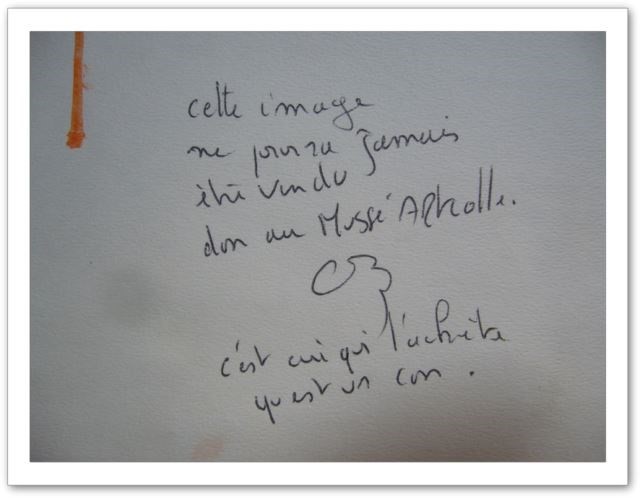 cette image
ne pourra jamais
être vendu
don au Mussé Artcolle.
c'est cui qui l'achète
qu est un con.